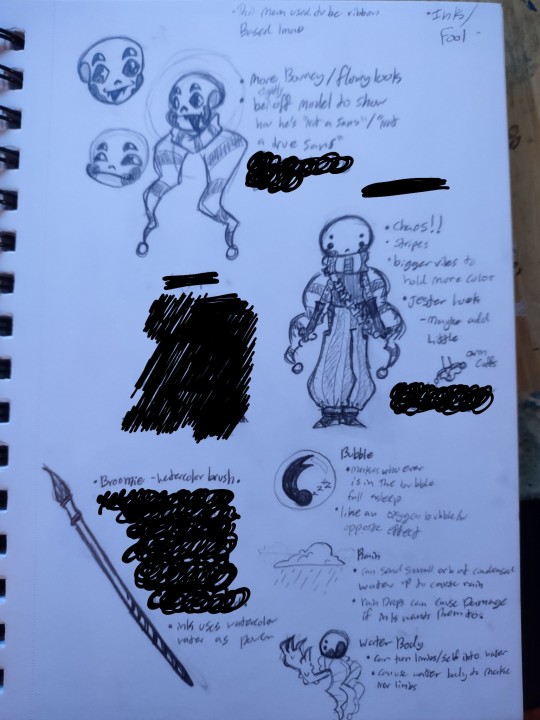 • This man used to be ribbon
Based lmao
• Ink/
Fool
• more Bouncy/flowy looks
• be off model to show
how he's "not a sans"/"not
a true sans"
• Chaos!!
• Stripes
• bigger ribs to
hold more color
• Jester look
- maybe add
little
arm
cuffs
• Broomie - watercolor brush •
• ink uses watercolor
water as power
Bubble
• makes who ever
is in the bubble
fall asleep
• like an oxygen bubble for
opposite effect
zzz
Rain
• can send small orb of condensed
water up to create rain
• rain Drops can cause Damage
if ink wants them to.
Water Body
• can turn limbs/self into water
• can use water body to make
mor limbs